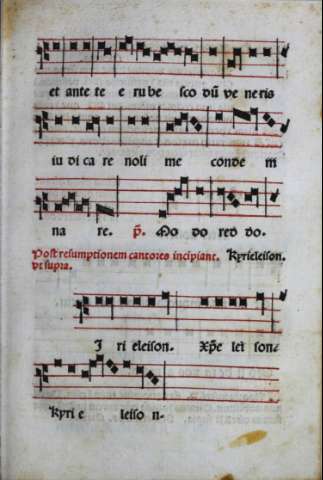 et ante te e rube sco dū ve neris
iu di ca re noli me conde m
na re. p̄. Mo do red do.
Post resumptionem cantores incipiant. Kyrieleison.
vt supra.
J ri eleison. Xp̄e lei son.
Kyri e leiso n.